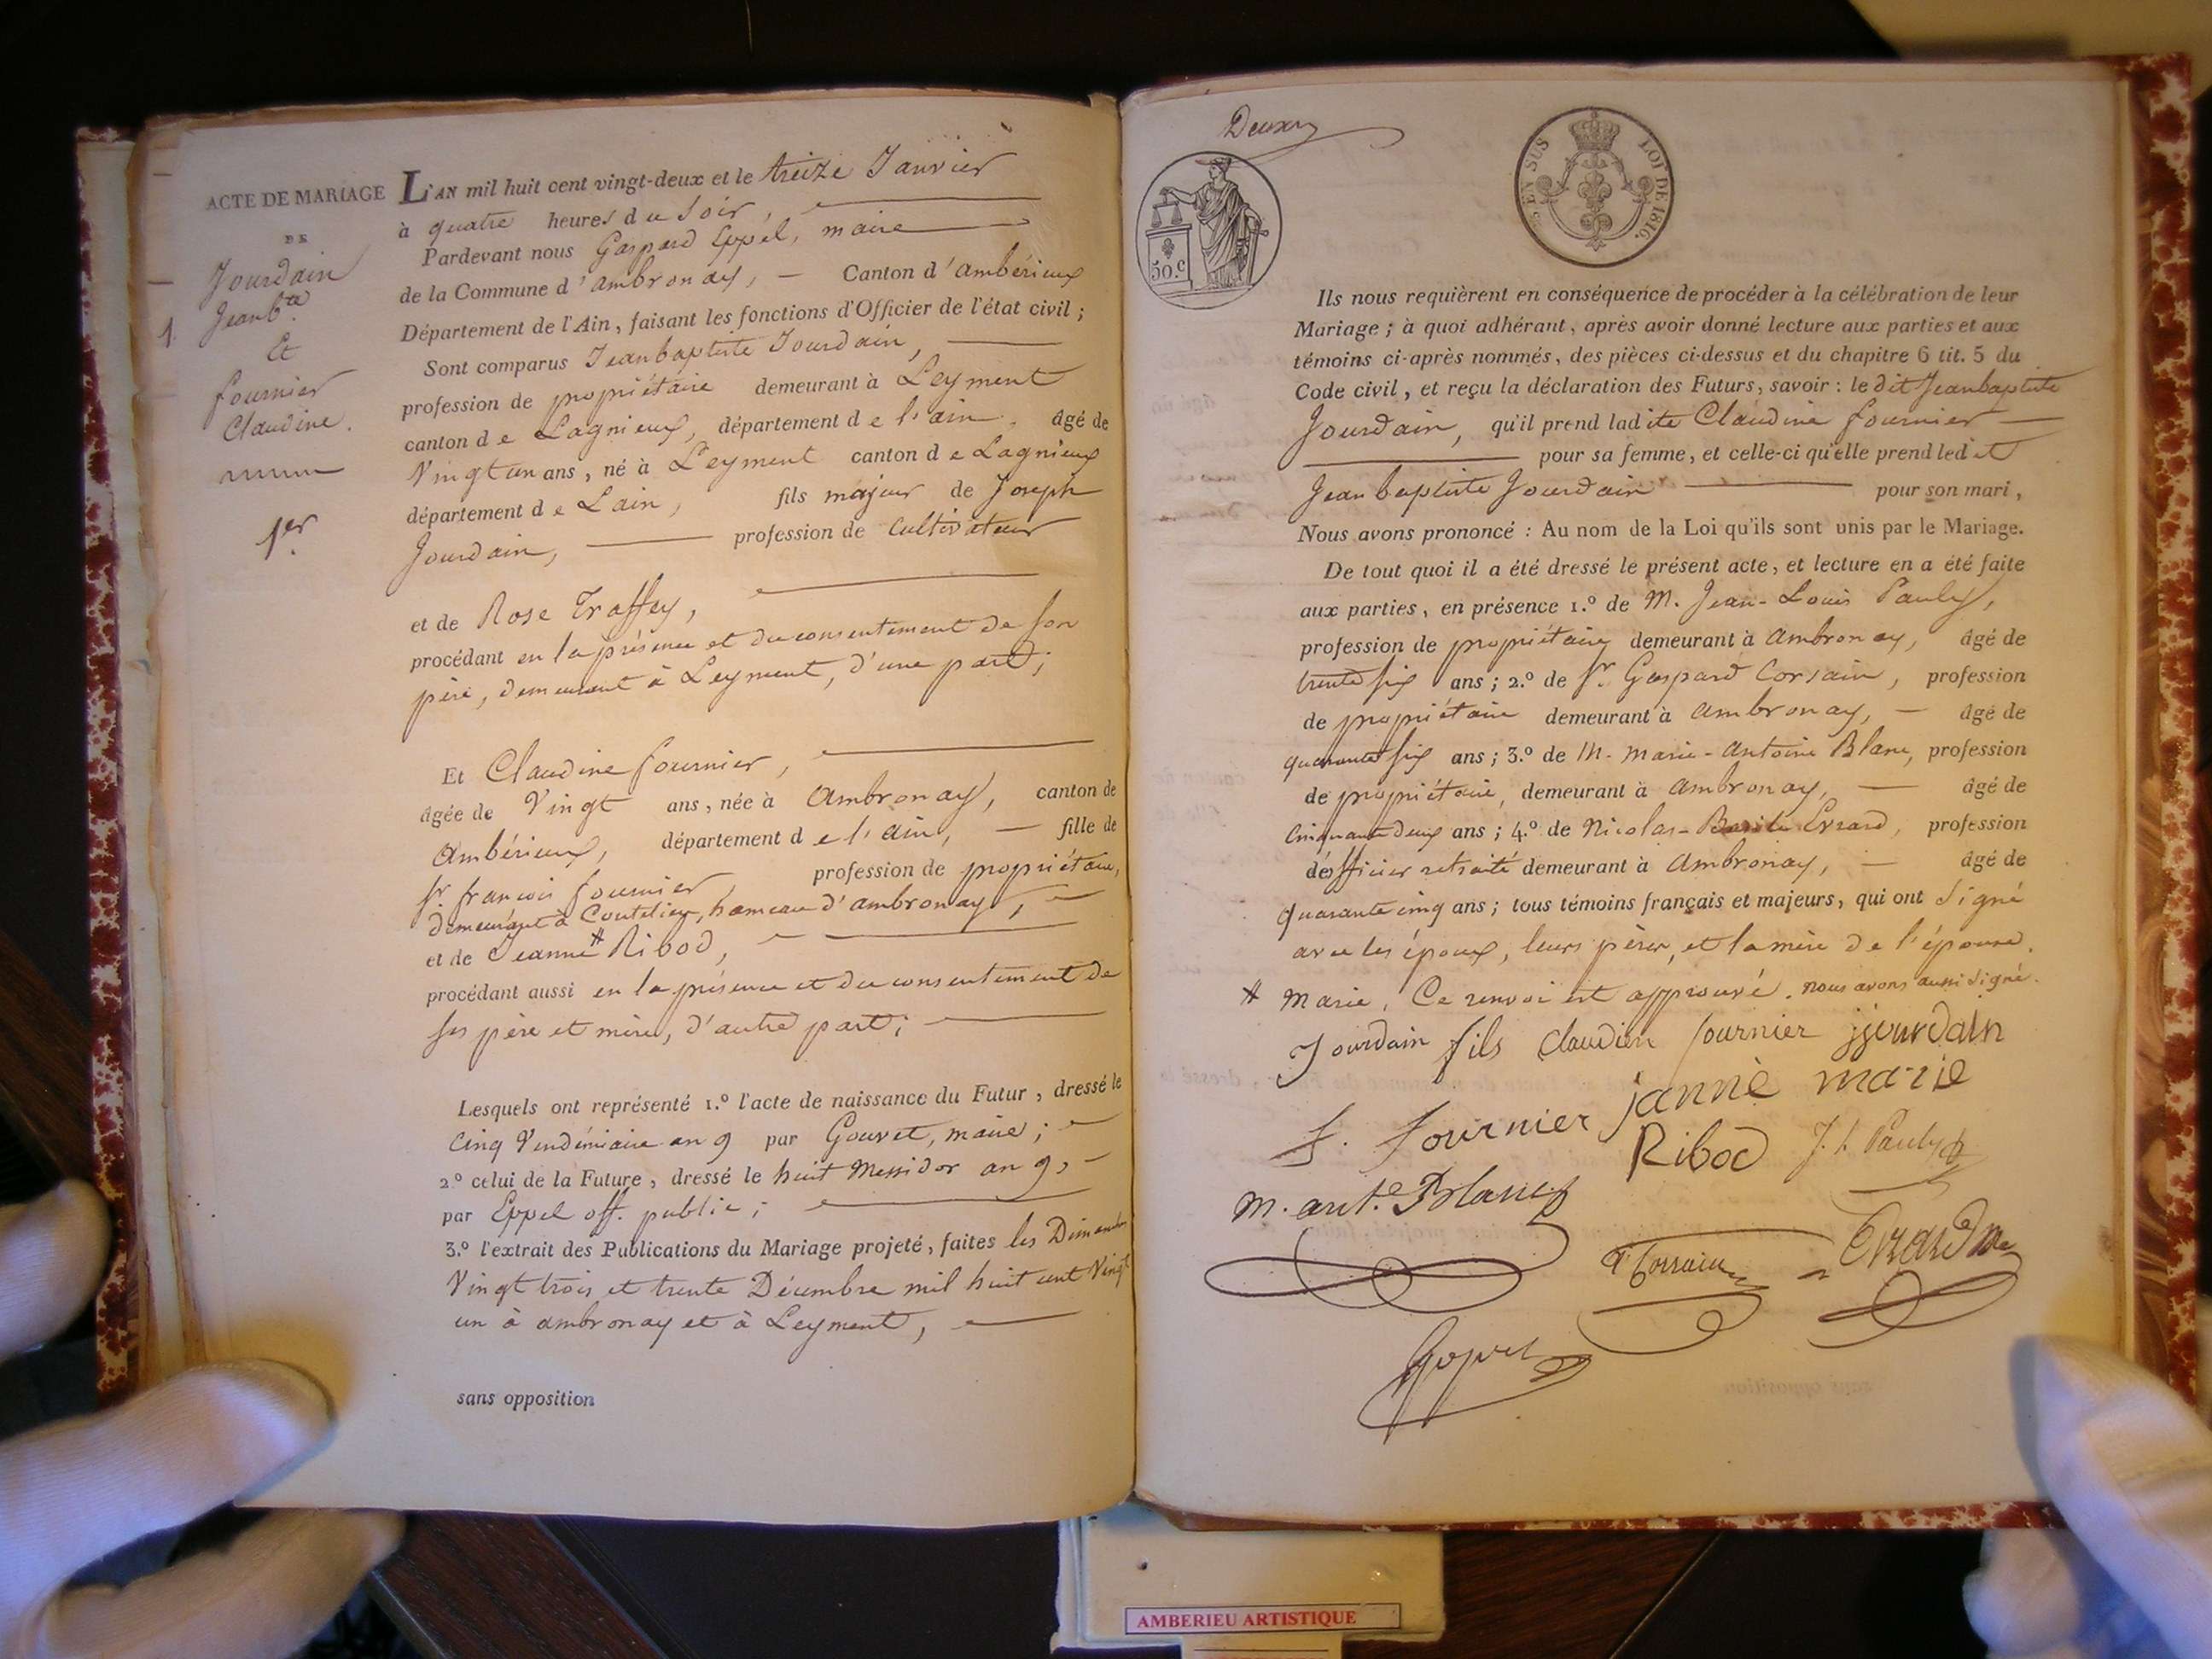 ACTE DE MARIAGE
DE
Jourdain
Jeanb.te
Et
fournier
Claudine.
1.
1.er
L'AN mil huit cent vingt-deux et le treize Janvier
à quatre heures du soir,
Pardevant nous Gaspard Eppel, maire
de la Commune d'ambronay, — Canton d'ambérieux
Département de l'Ain, faisant les fonctions d'Officier de l'état civil ;
Sont comparus Jeanbaptiste Jourdain,
profession de propriétaire demeurant à Leyment
canton de Lagnieux, département de l'ain, âgé de
Vingt un ans, né à Leyment canton de Lagnieux
département de Lain, fils majeur de Joseph
Jourdain, — profession de Cultivateur
et de Rose Traffey,
procédant en la présence et du consentement de son
père, demeurant à Leyment, d'une part ;
Et Claudine fournier,
âgée de Vingt ans, née à Ambronay, canton de
Ambérieux, département de l'Ain, — fille de
Sr. françois fournier, profession de propriétaire,
demeurant à Coutelieu, hameau d'ambronay, —
et de Jeanne # Ribod,
procédant aussi en la présence et du consentement de
ses père et mère, d'autre part ;
Lesquels ont représenté 1.º l'acte de naissance du Futur, dressé le
Cinq Vendémiaire an 9 par Gouvet, maire ; —
2.º celui de la Future, dressé le huit Messidor an 9, —
par Eppel off. public ;
3.º l'extrait des Publications du Mariage projeté, faites les Dimanches
Vingt trois et trente Décembre mil huit cent Vingt
un à ambronay et à Leyment,
sans opposition
Deux
50.c
EN SUS
LOI DE 1816.
Ils nous requièrent en conséquence de procéder à la célébration de leur
Mariage ; à quoi adhérant, après avoir donné lecture aux parties et aux
témoins ci-après nommés, des pièces ci-dessus et du chapitre 6 tit. 5 du
Code civil, et reçu la déclaration des Futurs, savoir : le dit Jeanbaptiste
Jourdain, qu'il prend ladite Claudine fournier —
— pour sa femme, et celle-ci qu'elle prend ledit
Jean baptiste Jourdain — pour son mari,
Nous avons prononcé : Au nom de la Loi qu'ils sont unis par le Mariage.
De tout quoi il a été dressé le présent acte, et lecture en a été faite
aux parties, en présence 1.º de M. Jean-Louis Pauly,
profession de propriétaire demeurant à Ambronay, âgé de
trente six ans ; 2.º de Sr. Gaspard Corsain, profession
de propriétaire demeurant à ambronay, — âgé de
quarante six ans ; 3.º de M. Marie-Antoine Blanc, profession
de propriétaire, demeurant à ambronay, — âgé de
Cinquante deux ans ; 4.º de Nicolas-Basile Evrard, profession
d'officier retraité demeurant à Ambronay, — âgé de
quarante cinq ans ; tous témoins français et majeurs, qui ont signé
avec les époux, leurs pères, et la mère de l'épouse.
# Marie, Ce renvoi est approuvé. nous avons aussi signé.
Jourdain fils Claudine fournier jjourdain
f. fournier jannè marie
Ribod J. L. Pauly
M. ant.e Blanc
Evrard
AMBERIEU ARTISTIQUE